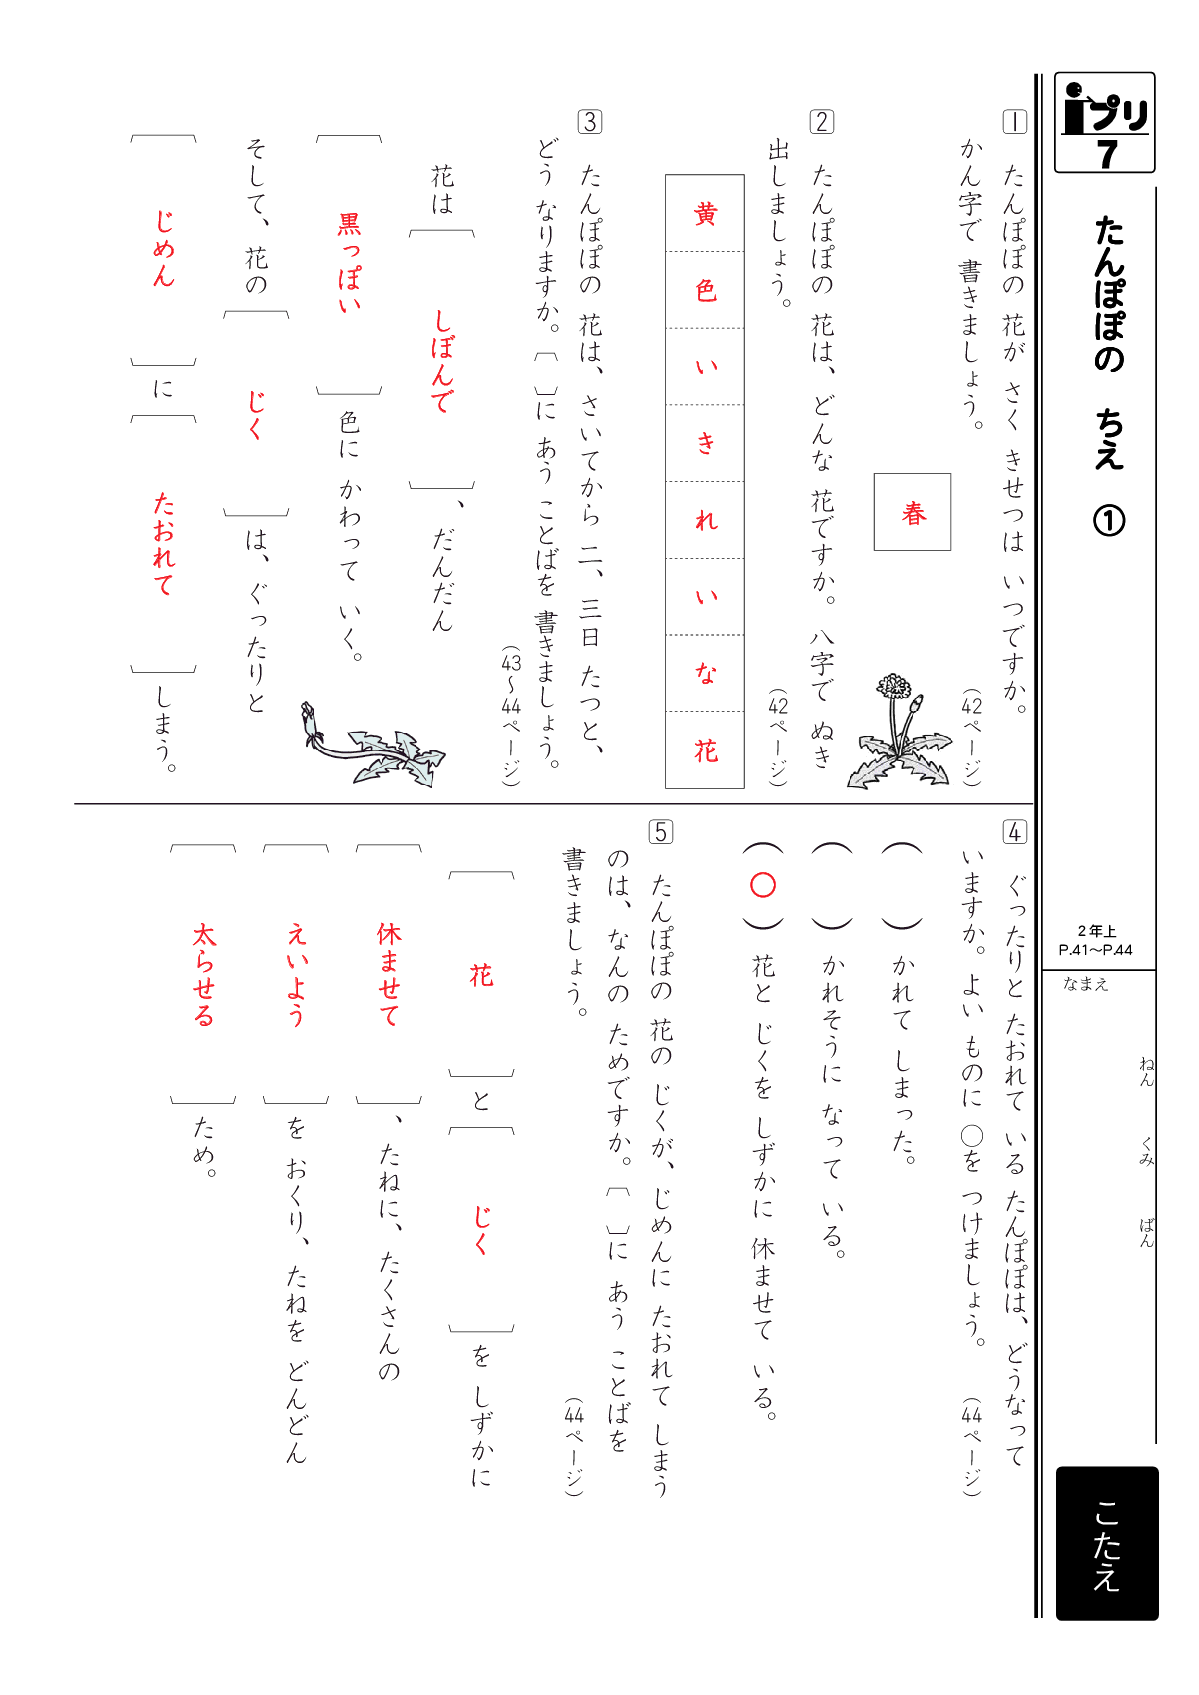 iプリ
7
たんぽぽの ちえ ①
2年上
P.41〜P.44
なまえ
ねん くみ ばん
こたえ
1 たんぽぽの 花が さく きせつは いつですか。
かん字で 書きましょう。 (42ページ)
春
2 たんぽぽの 花は、どんな 花ですか。八字で ぬき
出しましょう。 (42ページ)
黄色いきれいな花
3 たんぽぽの 花は、さいてから 二、三日 たつと、
どう なりますか。〔 〕に あう ことばを 書きましょう。
(43〜44ページ)
花は〔しぼんで〕、だんだん
〔黒っぽい〕色に かわって いく。
そして、花の〔じく〕は、ぐったりと
〔じめん〕に〔たおれて〕しまう。
4 ぐったりと たおれて いる たんぽぽは、どうなって
いますか。よい ものに ○を つけましょう。 (44ページ)
( )かれて しまった。
( )かれそうに なって いる。
(○)花と じくを しずかに 休ませて いる。
5 たんぽぽの 花の じくが、じめんに たおれて しまう
のは、なんの ためですか。〔 〕に あう ことばを
書きましょう。 (44ページ)
〔花〕と〔じく〕を しずかに
〔休ませて〕、たねに、たくさんの
〔えいよう〕を おくり、たねを どんどん
〔太らせる〕ため。